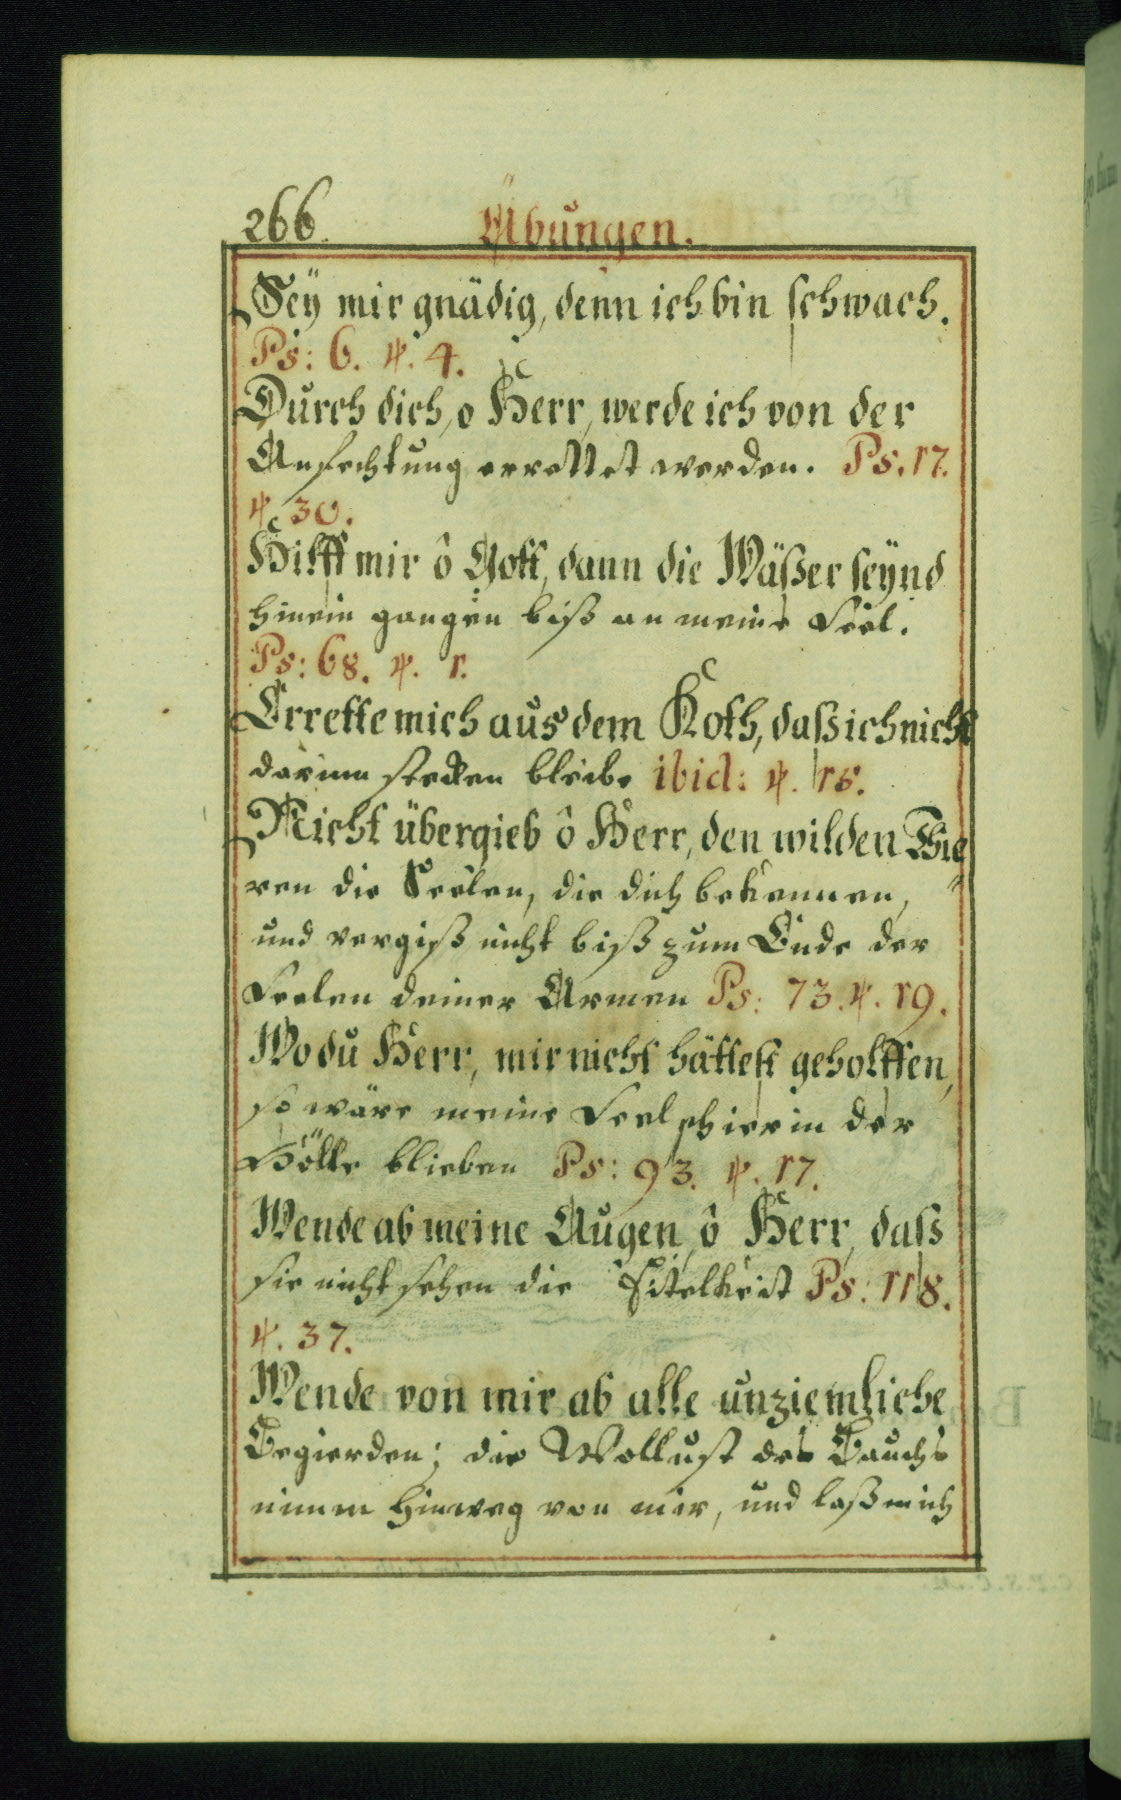 266. Übungen.
Seÿ mir gnädig, denn ich bin schwach.
Ps: 6. ℣. 4.
Durch dich, o Herr, werde ich von der
Anfechtung errettet werden. Ps. 17.
℣. 30.
Hilff mir ô Gott, dann die Wäßer seÿnd
hinein gangen biß an meine Seel.
Ps: 68. ℣. 1.
Errette mich aus dem Koth, daß ich nicht
darinn stecken bleibe ibid: ℣. 15.
Nicht übergieb ô Herr, den wilden Thie„
ren die Seelen, die dich bekennen,
und vergiß nicht biß zum Ende der
Seelen deiner Armen Ps: 73. ℣. 19.
Wo du Herr, mir nicht hättest geholffen,
so wäre meine Seel schier in der
Hölle blieben Ps: 93. ℣. 17.
Wende ab meine Augen, ô Herr, daß
sie nicht sehen die Eitelkeit Ps: 118.
℣. 37.
Wende von mir ab alle unziemliche
Begierden; die Wollust des Bauchs
nimm hinweg von mir, und laß mich